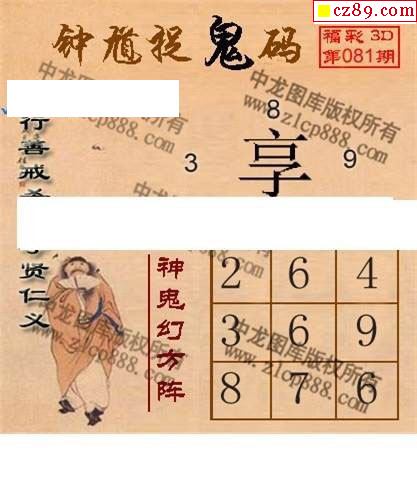 cz89.com
钟馗捉鬼码
福彩 3D
第081期
中龙图库版权所有
www.zlcp888.com
行善戒
贤仁义
8
3 享 9
神鬼幻方阵
2 6 4
3 6 9
8 7 6
中龙图库版权所有
www.zlcp888.com